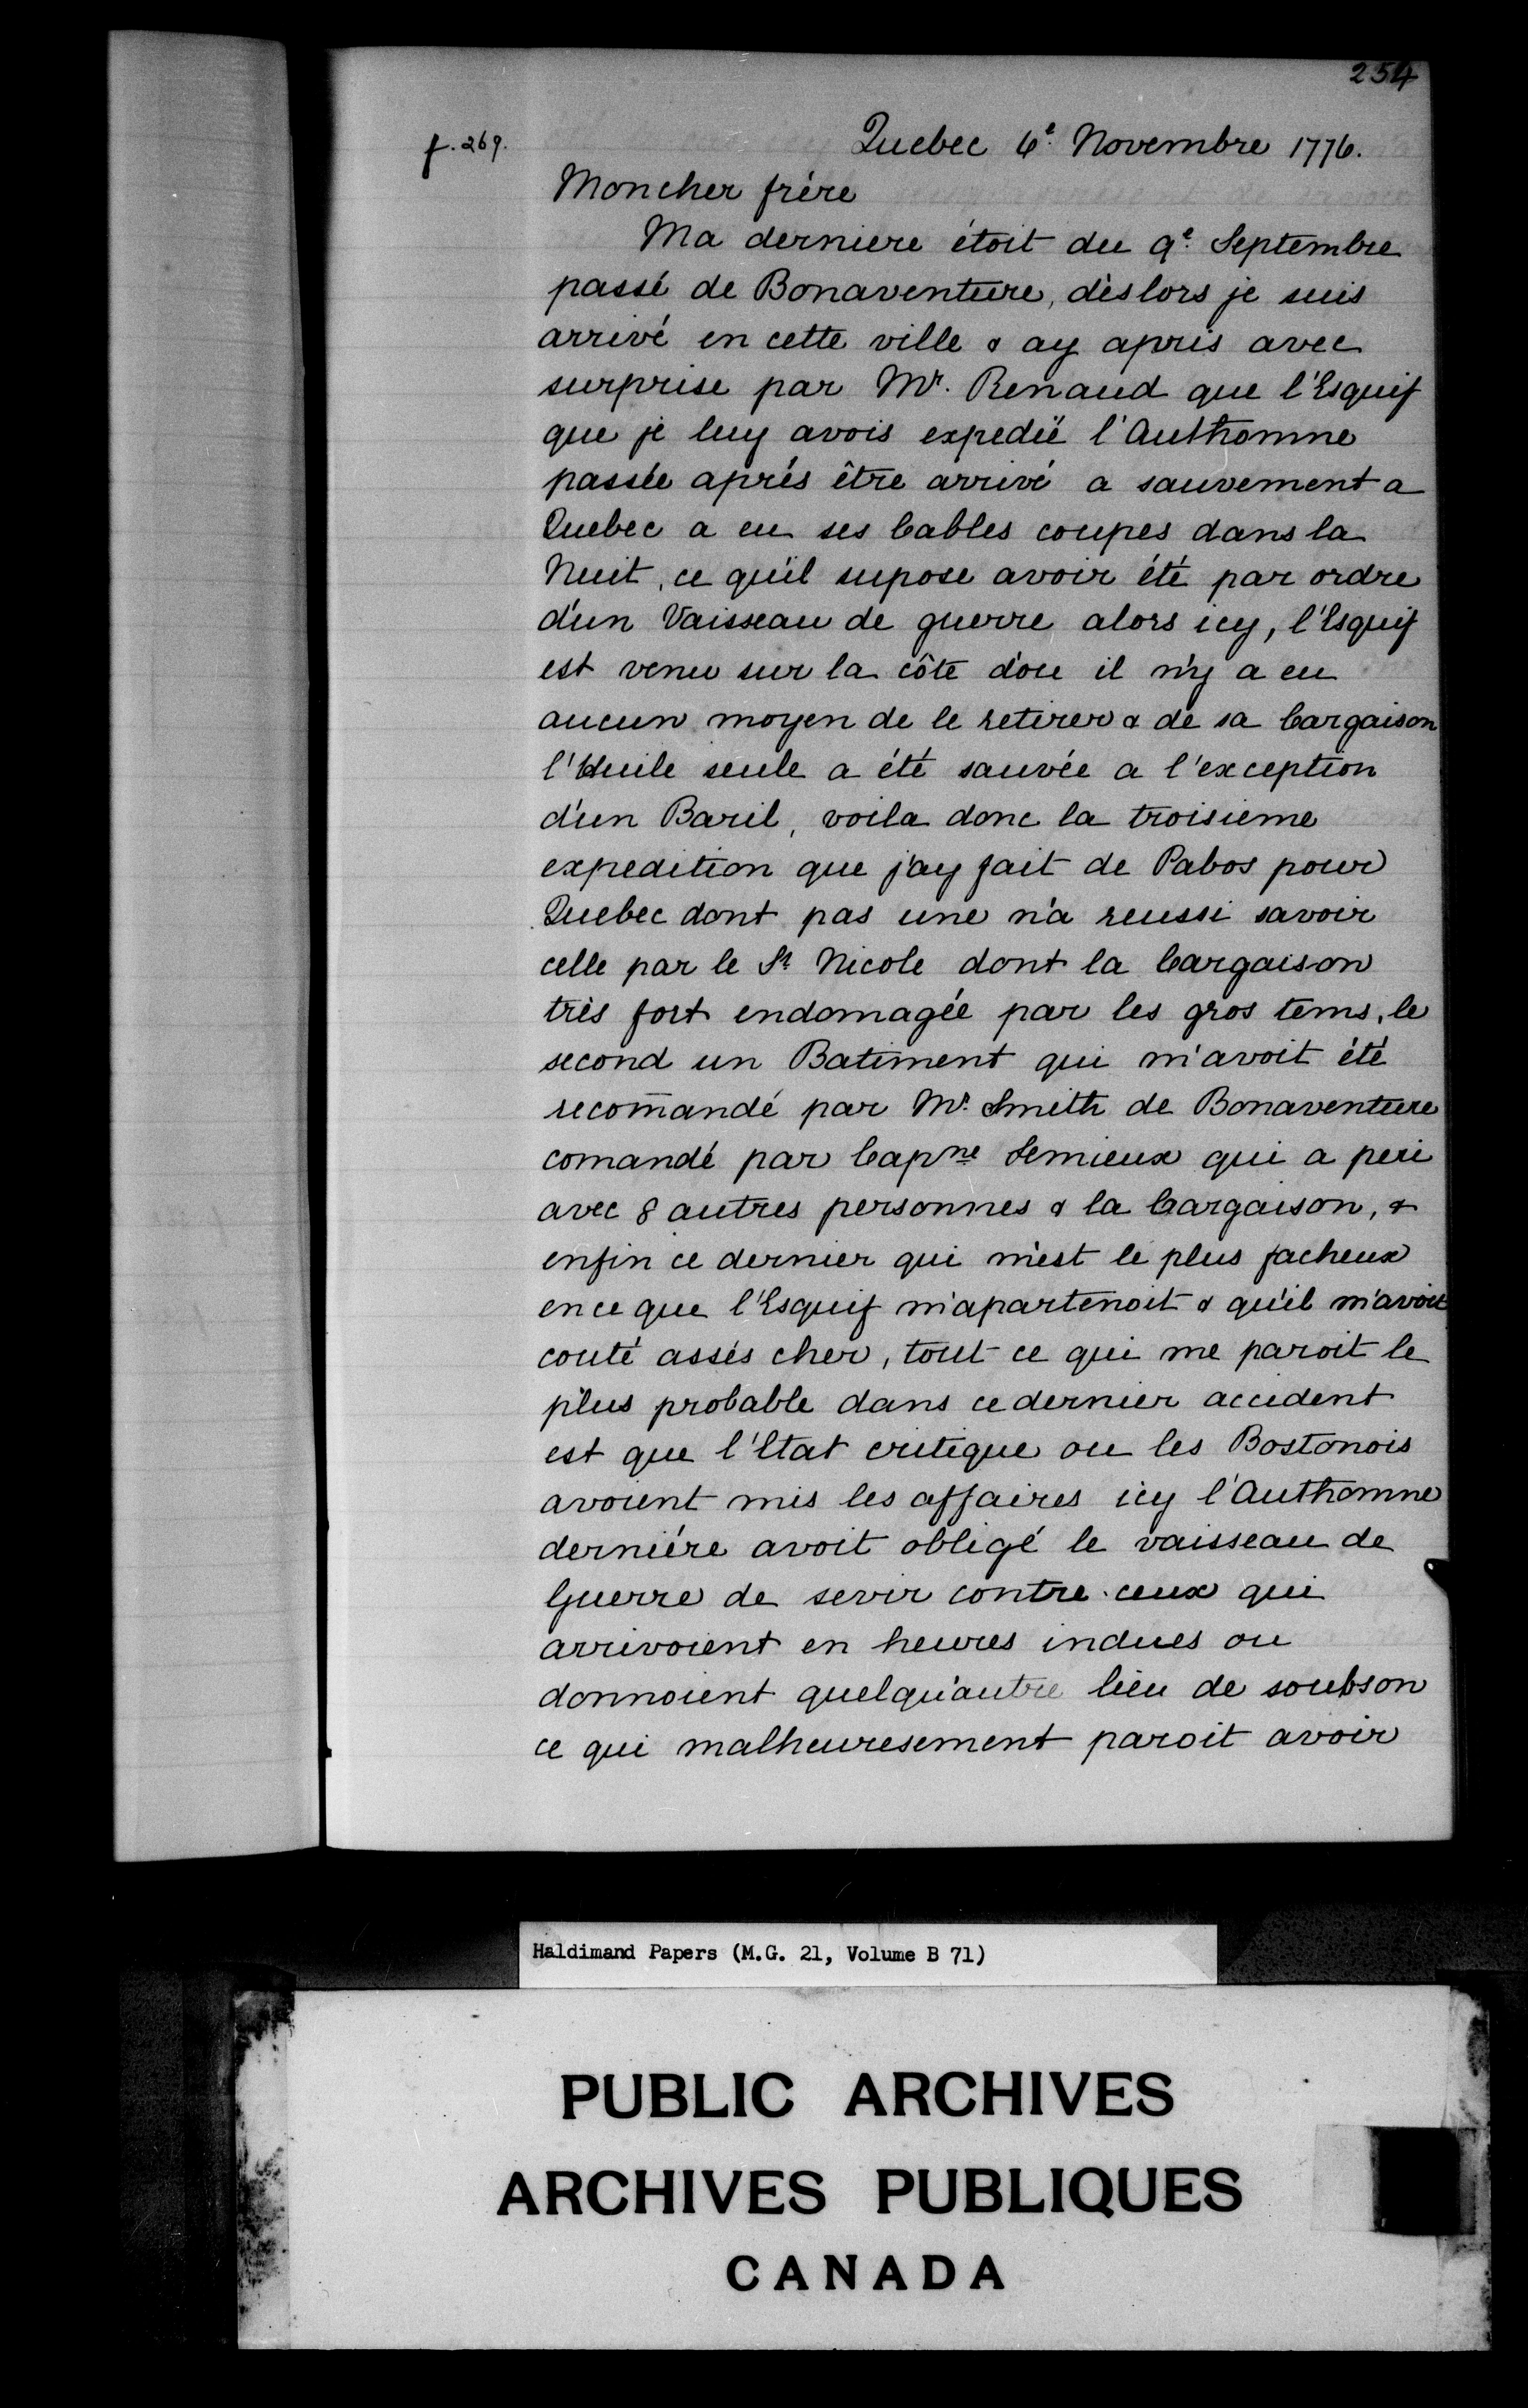 254
f. 269.
Quebec 6e. Novembre 1776.
Moncher frére
Ma derniere étoit du 9e. Septembre
passé de Bonaventure, dèslors je suis
arrivé en cette ville & ay apris avec
surprise par Mr. Renaud que l'Esquif
que je luy avois expedié l'Authomne
passée aprés être arrivé a sauvement a
Quebec a eu ses Cables coupes dans la
Nuit, ce qu'il supose avoir été par ordre
d'un Vaisseau de guerre alors icy, l'Esquif
est venu sur la côte d'ou il n'y a eu
aucun moyen de le retirer & de sa Cargaison
l'Huile seule a été sauvée a l'exception
d'un Baril, voila donc la troisieme
expedition que j'ay fait de Pabos pour
Quebec dont pas une n'a reussi savoir
celle par le St. Nicole dont la Cargaison
très fort endomagée par les gros tems, le
second un Batiment qui m'avoit été
recomandé par Mr. Smith de Bonaventure
comandé par Capne Lemieux qui a peri
avec 8 autres personnes & la Cargaison, &
enfin ce dernier qui m'est le plus facheux
ence que l'Esquif m'apartenoit & qu'il m'avoit
couté assés cher, tout ce qui me paroit le
plus probable dans cedernier accident
est que l'Etat critique ou les Bostonois
avoient mis les affaires icy l'Authomne
derniére avoit obligé le vaisseau de
Guerre de sevir contre ceux qui
arrivoient en heures indues ou
donnoient quelqu'autre lieu de soubson
ce qui malheuresement paroit avoir
Haldimand Papers (M.G. 21, Volume B 71)
PUBLIC ARCHIVES
ARCHIVES PUBLIQUES
CANADA